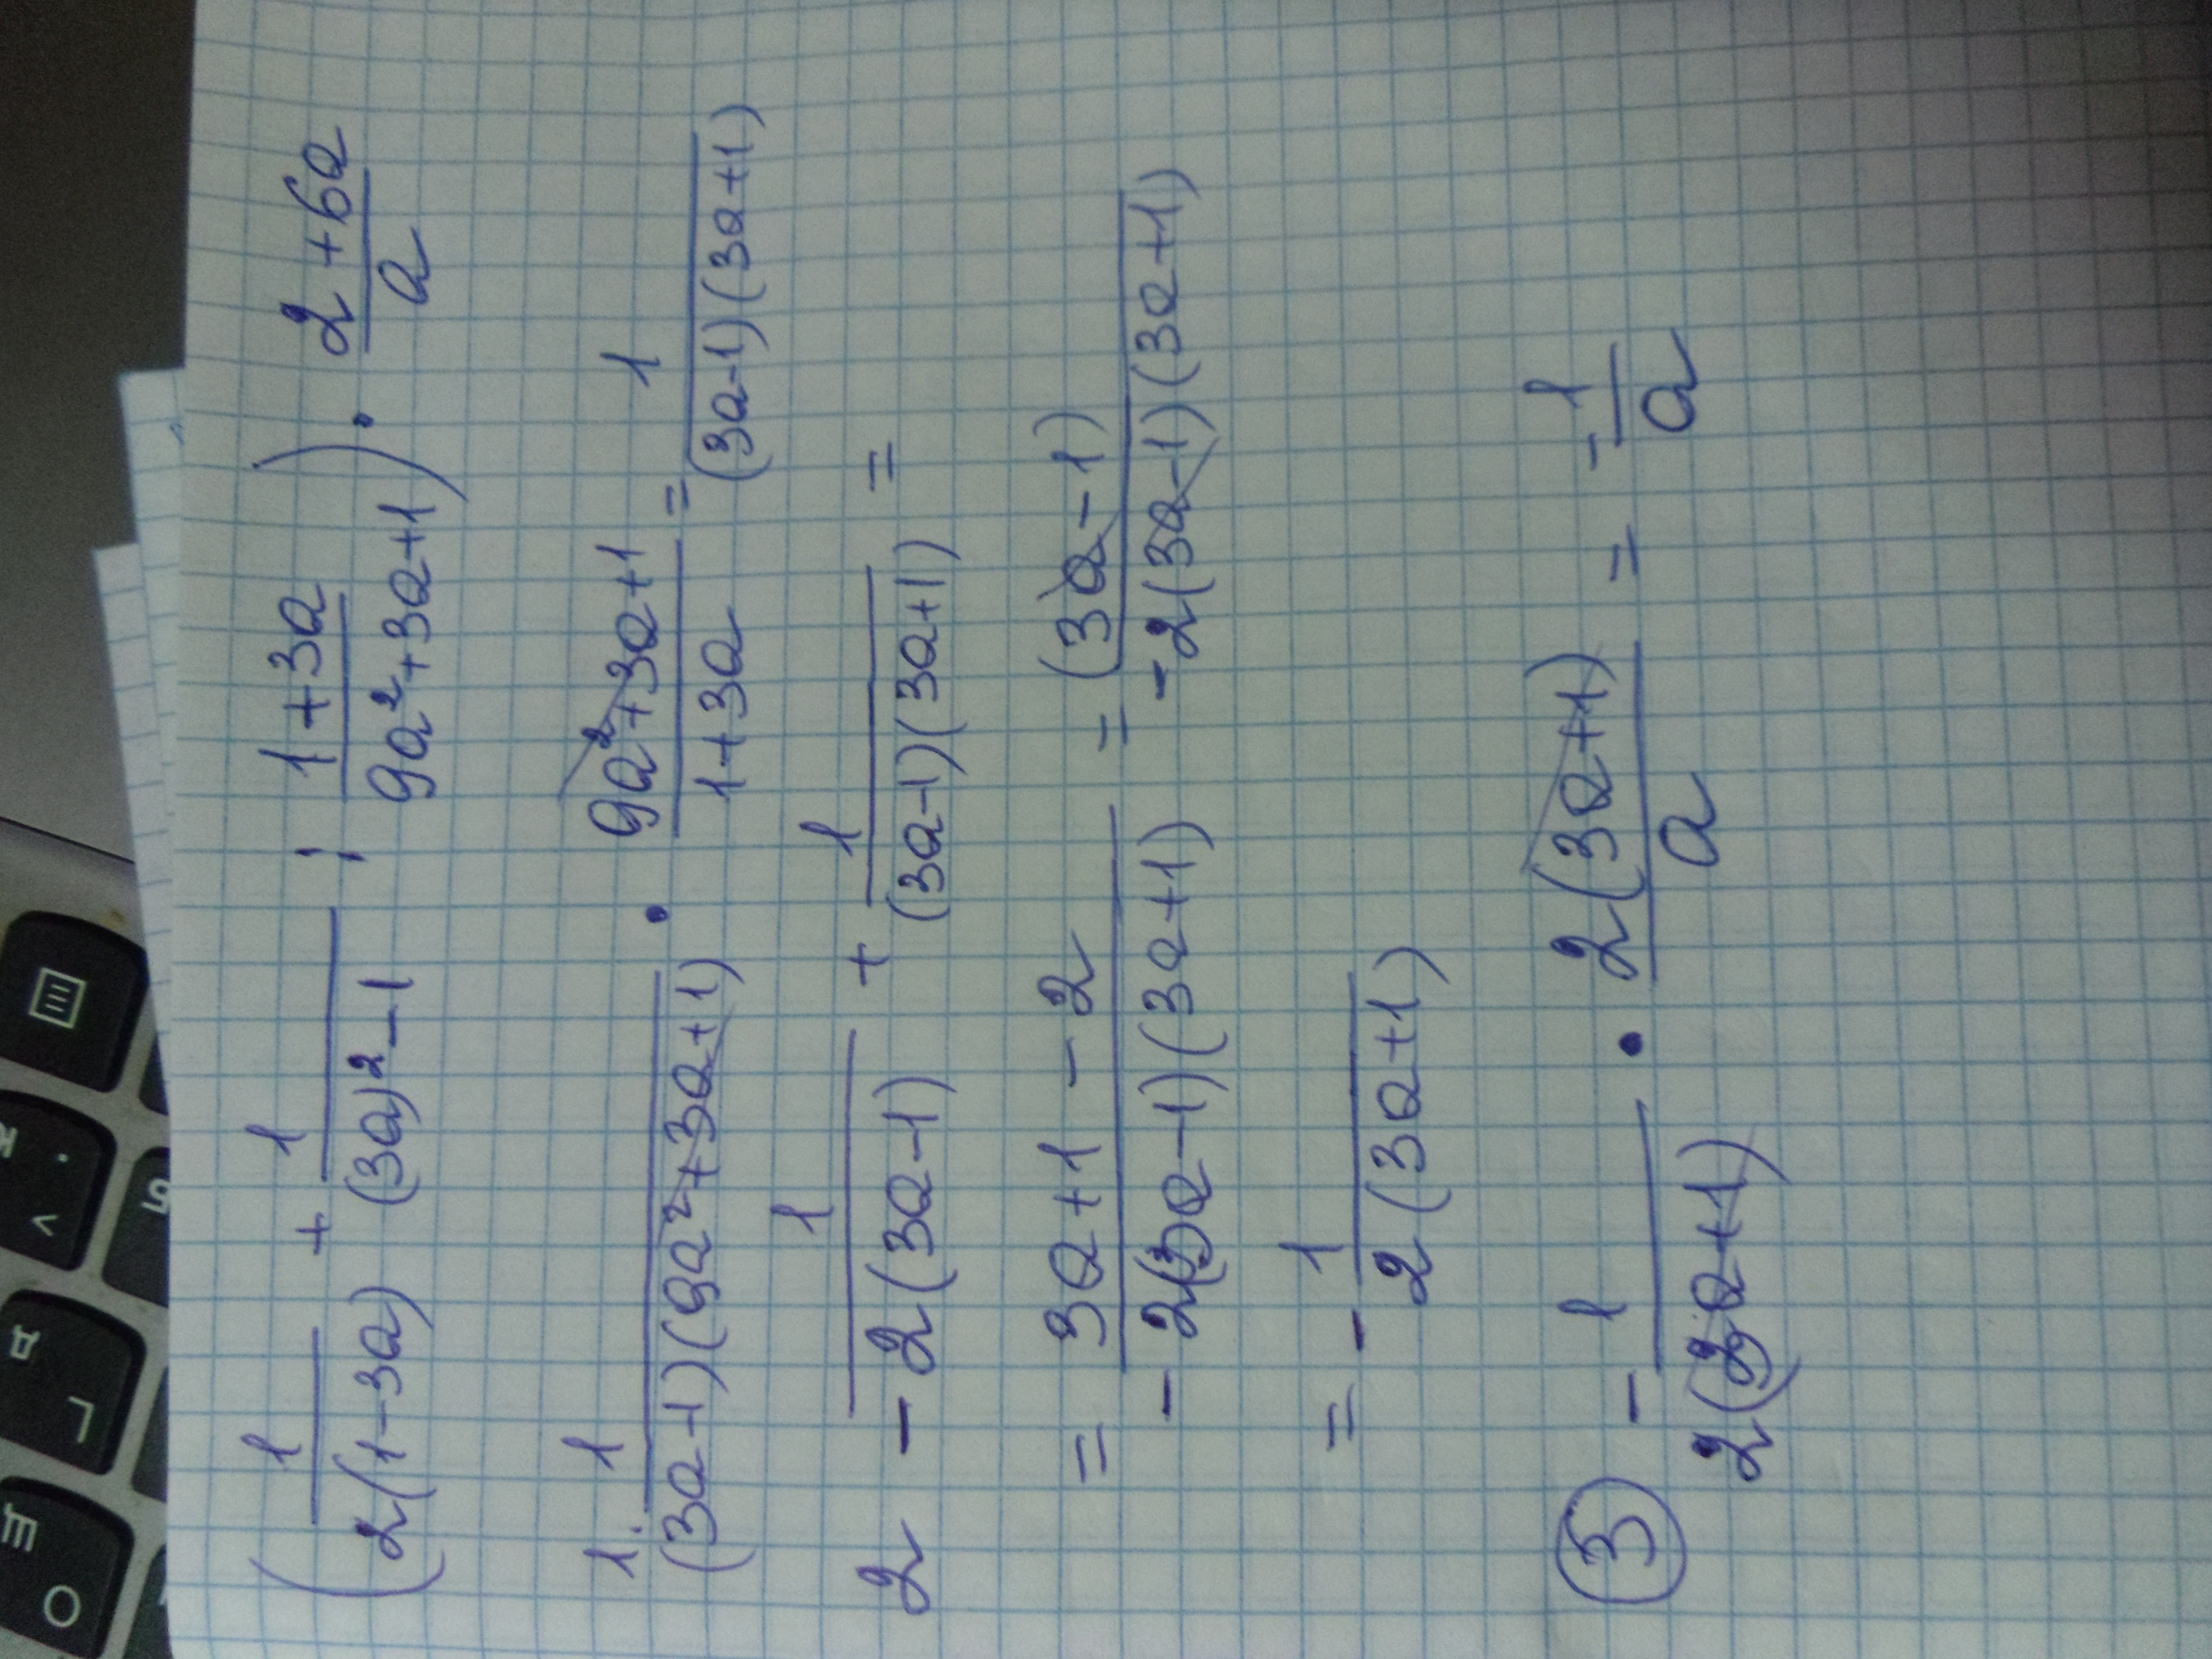 (1/(2(1-3a)) + 1/((3a)²-1) : (1+3a)/(9a²+3a+1)) · (2+6a)/a
1. 1/((3a-1)(9a²+3a+1)) · (9a²+3a+1)/(1+3a) = 1/((3a-1)(3a+1))
2 1/(-2(3a-1)) + 1/((3a-1)(3a+1)) =
= (3a+1-2)/(-2(3a-1)(3a+1)) = (3a-1)/(-2(3a-1)(3a+1))
= -1/(2(3a+1))
3 -1/(2(3a+1)) · 2(3a+1)/a = -1/a
Щ
O
Д
L
V